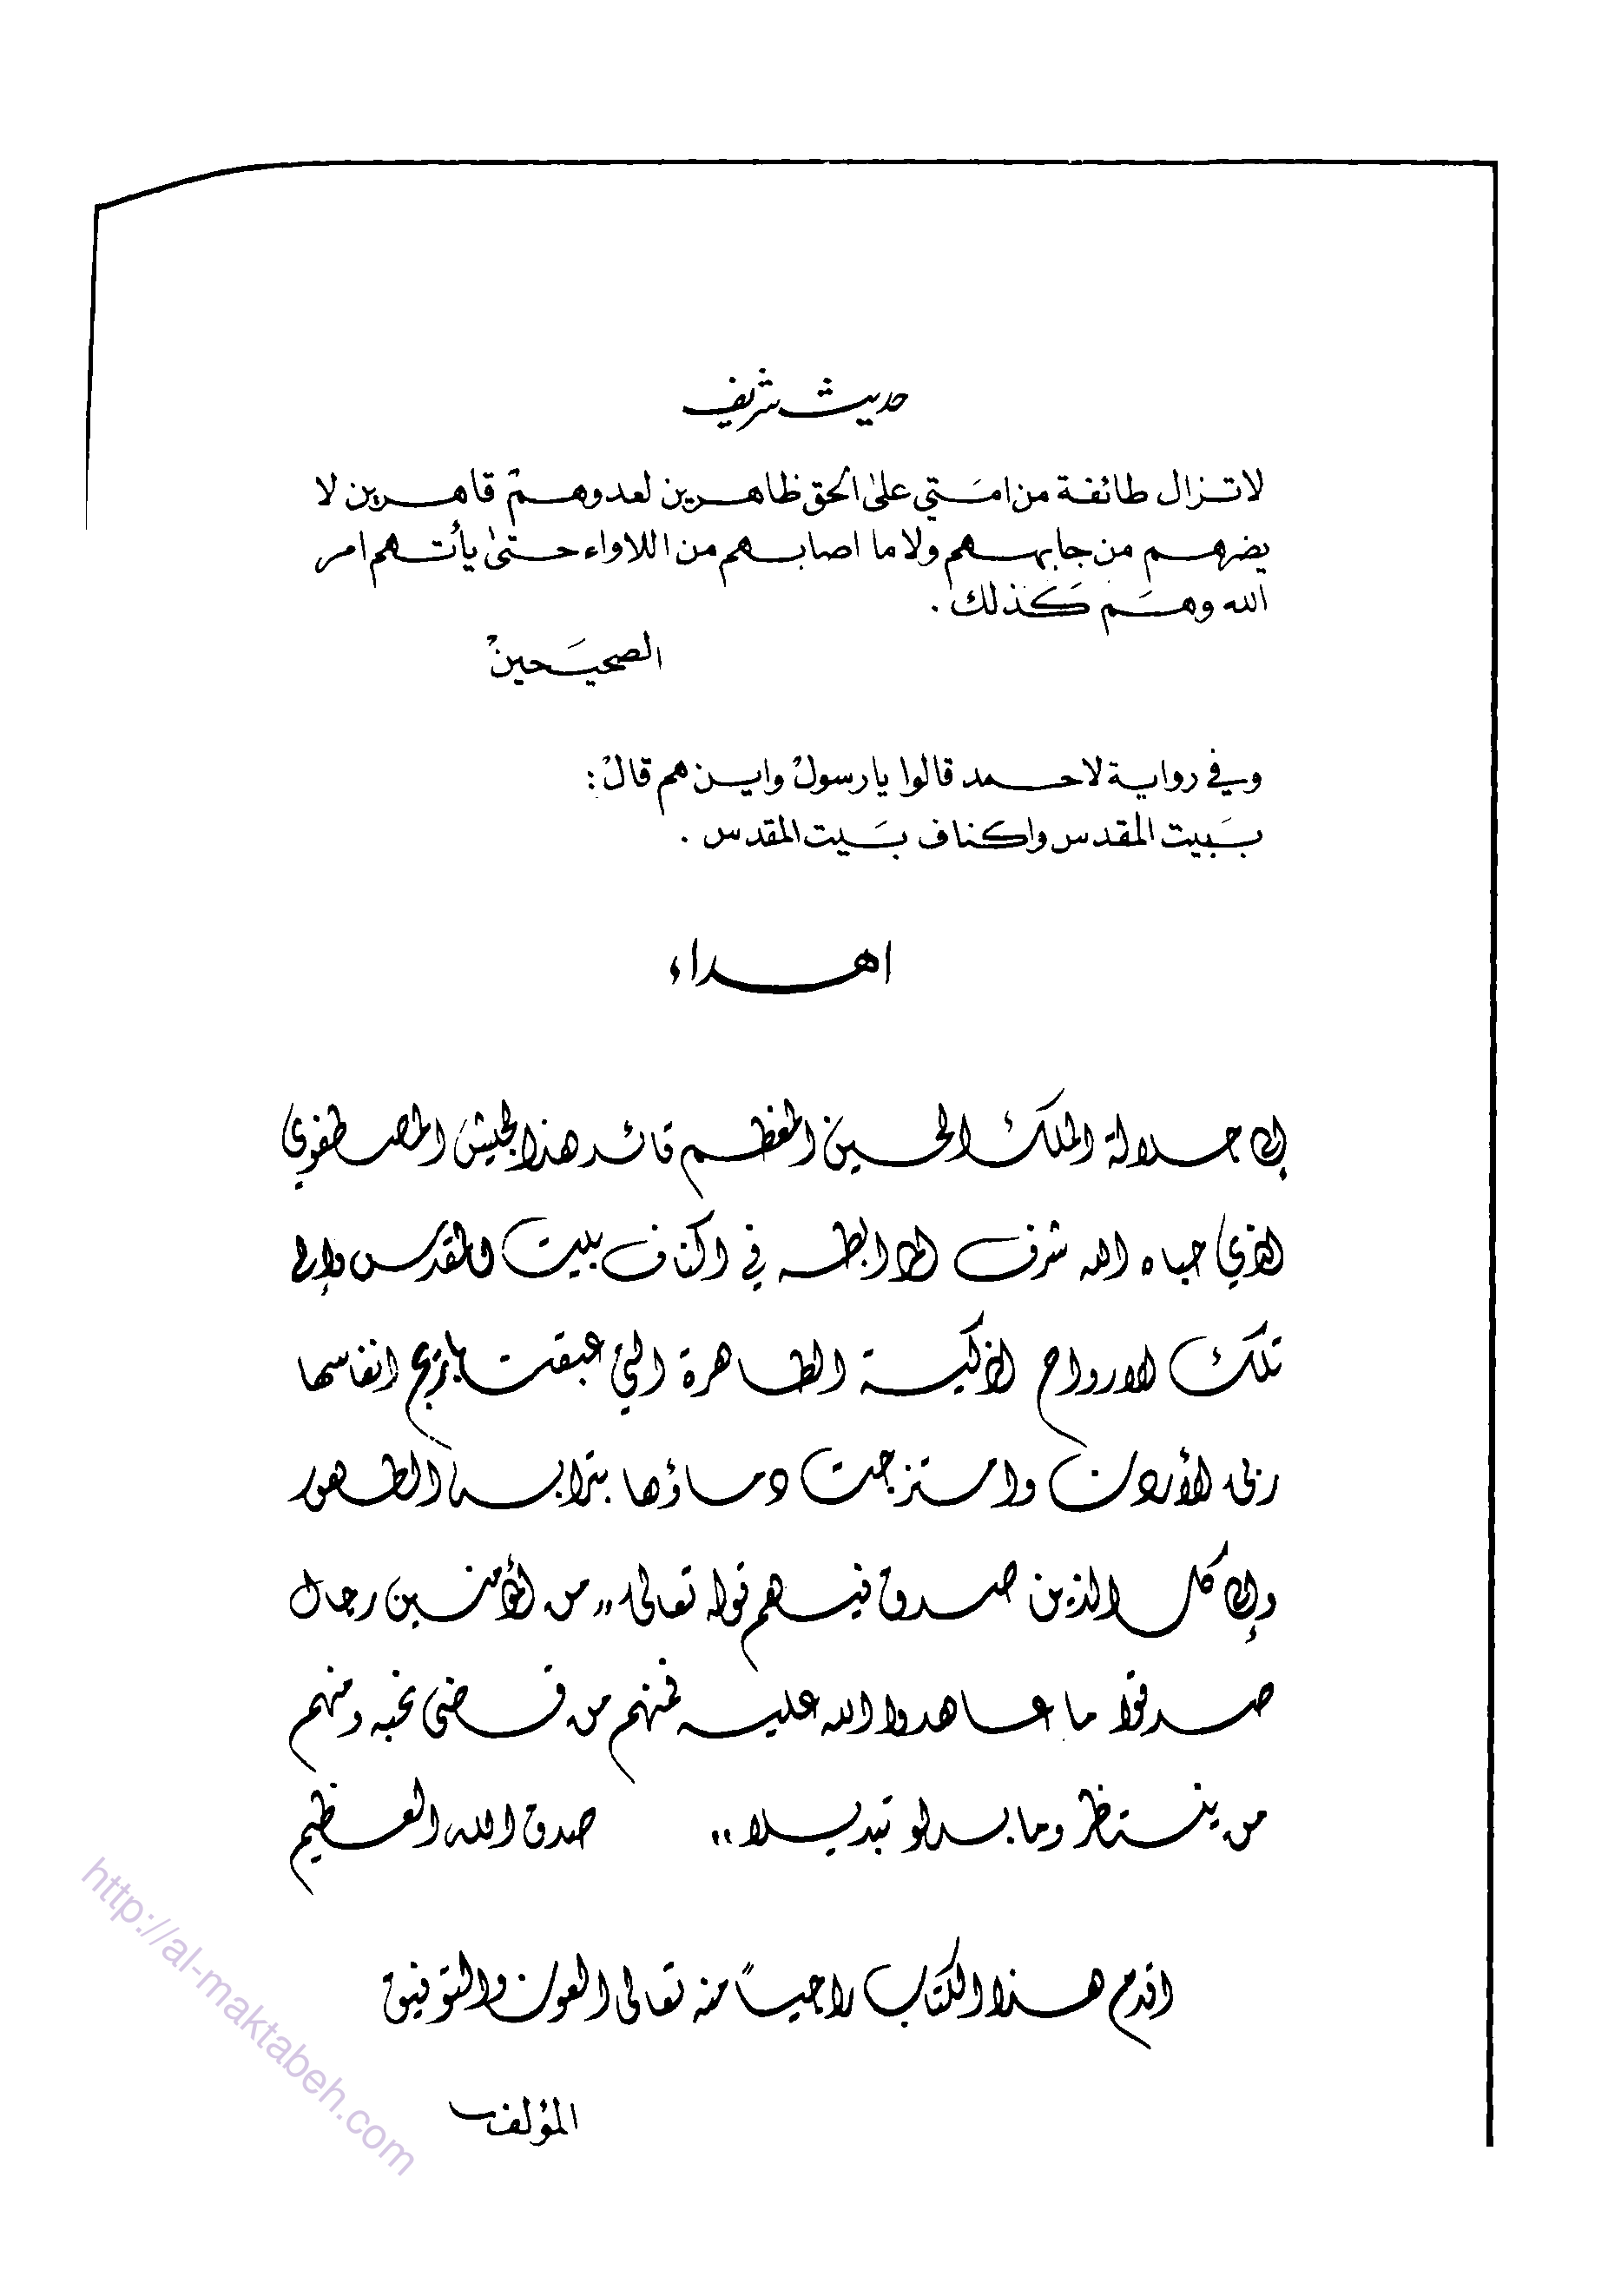 حديث شريف
لا تزال طائفة من امتي على الحق ظاهرين لعدوهم قاهرين لا
يضرهم من جابههم ولا ما اصابهم من اللاواء حتى يأتهم امر
الله وهم كذلك .
الصحيحين
وفي رواية لاحمد قالوا يا رسول واين هم قال :
ببيت المقدس واكناف بيت المقدس .
اهداء
إلى جلالة الملك الحسين المعظم قائد هذا الجيش المصطفوي
الذي حباه الله شرف المرابطة في اكناف بيت المقدس وإلى
تلك الارواح الزكية الطاهرة التي عبقت بأريج انفاسها
ربى الأردن وامتزجت دماؤها بترابه الطهور
وإلى كل الذين صدق فيهم قوله تعالى ,, من المؤمنين رجال
صدقوا ما عاهدوا الله عليه فمنهم من قضى نحبه ومنهم
من ينتظر وما بدلو تبديلا ,, صدق الله العظيم
اقدم هذا الكتاب راجياً منه تعالى العون والتوفيق
المؤلف
http://al-maktabeh.com